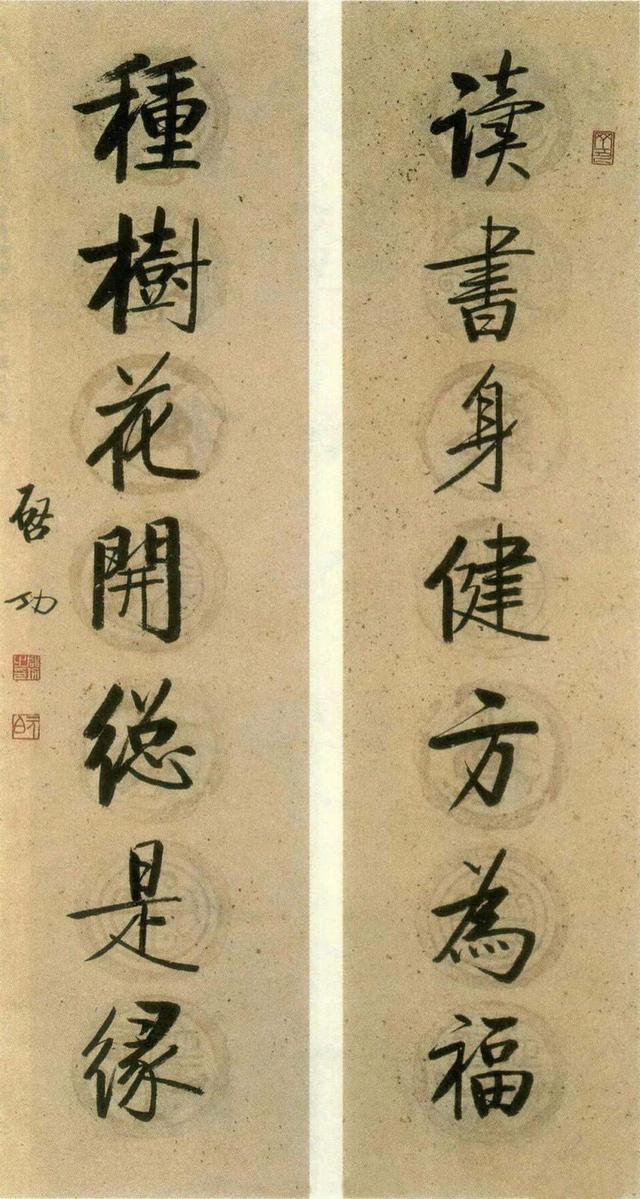 读书身健方为福
種樹花開總是緣
启功